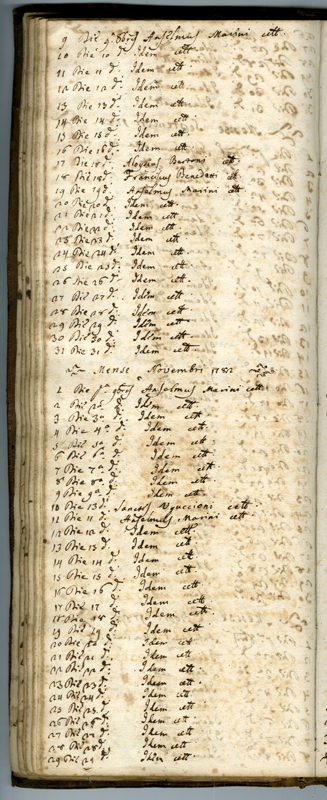 9 Die 9ª 8bris Anselmus Marini cett.
10 Die 10 d. Idem cett
11 Die 11 d. Idem cett
12 Die 12 d. Idem cett
13 Die 13 d. Idem cett
14 Die 14 d. Idem cett.
15 Die 15 d. Idem cett
16 Die 16 d. Idem cett
17 Die 17 d. Aloysius Bartoni cett.
18 Die 18 d. Franciscus Benedetti cett.
19 Die 19 d. Anselmus Marini cett
20 Die 20 d. Idem cett.
21 Die 21 d. Idem cett
22 Die 22 d. Idem cett
23 Die 23 d. Idem cett
24 Die 24 d. Idem cett.
25 Die 25 d. Idem cett
26 Die 26 d. Idem cett.
27 Die 27 d. Idem cett.
28 Die 28 d. Idem cett.
29 Die 29 d. Idem cett
30 Die 30 d. Idem cett.
31 Die 31 d. Idem cett
Mense Novembri 1782
1 Die pª 9bris Anselmus Marini cett.
2 Die 2ª d. Idem cett.
3 Die 3ª d. Idem cett
4 Die 4ª d. Idem cett
5 Die 5ª d. Idem cett.
6 Die 6ª d. Idem cett.
7 Die 7ª d. Idem cett
8 Die 8ª d. Idem cett.
9 Die 9ª d. Idem cett
10 Die d. Sanctes Uguccioni cett
11 Die 11 d. Anselmus Marini cett
12 Die 12 d. Idem cett.
13 Die 13 d. Idem cett
14 Die 14 d. Idem cett
15 Die 15 d. Idem cett
16 Die 16 d. Idem cett.
17 Die 17 d. Idem cett
18 Die 18 d. Idem cett.
19 Die 19 d. Idem cett
20 Die 20 d. Idem cett
21 Die 21 d. Idem cett
22 Die 22 d. Idem cett.
23 Die 23 d. Idem cett
24 Die 24 d. Idem cett.
25 Die 25 d. Idem cett
26 Die 26 d. Idem cett
27 Die 27 d. Idem cett
28 Die 28 d. Idem cett
29 Die 29 d. Idem cett